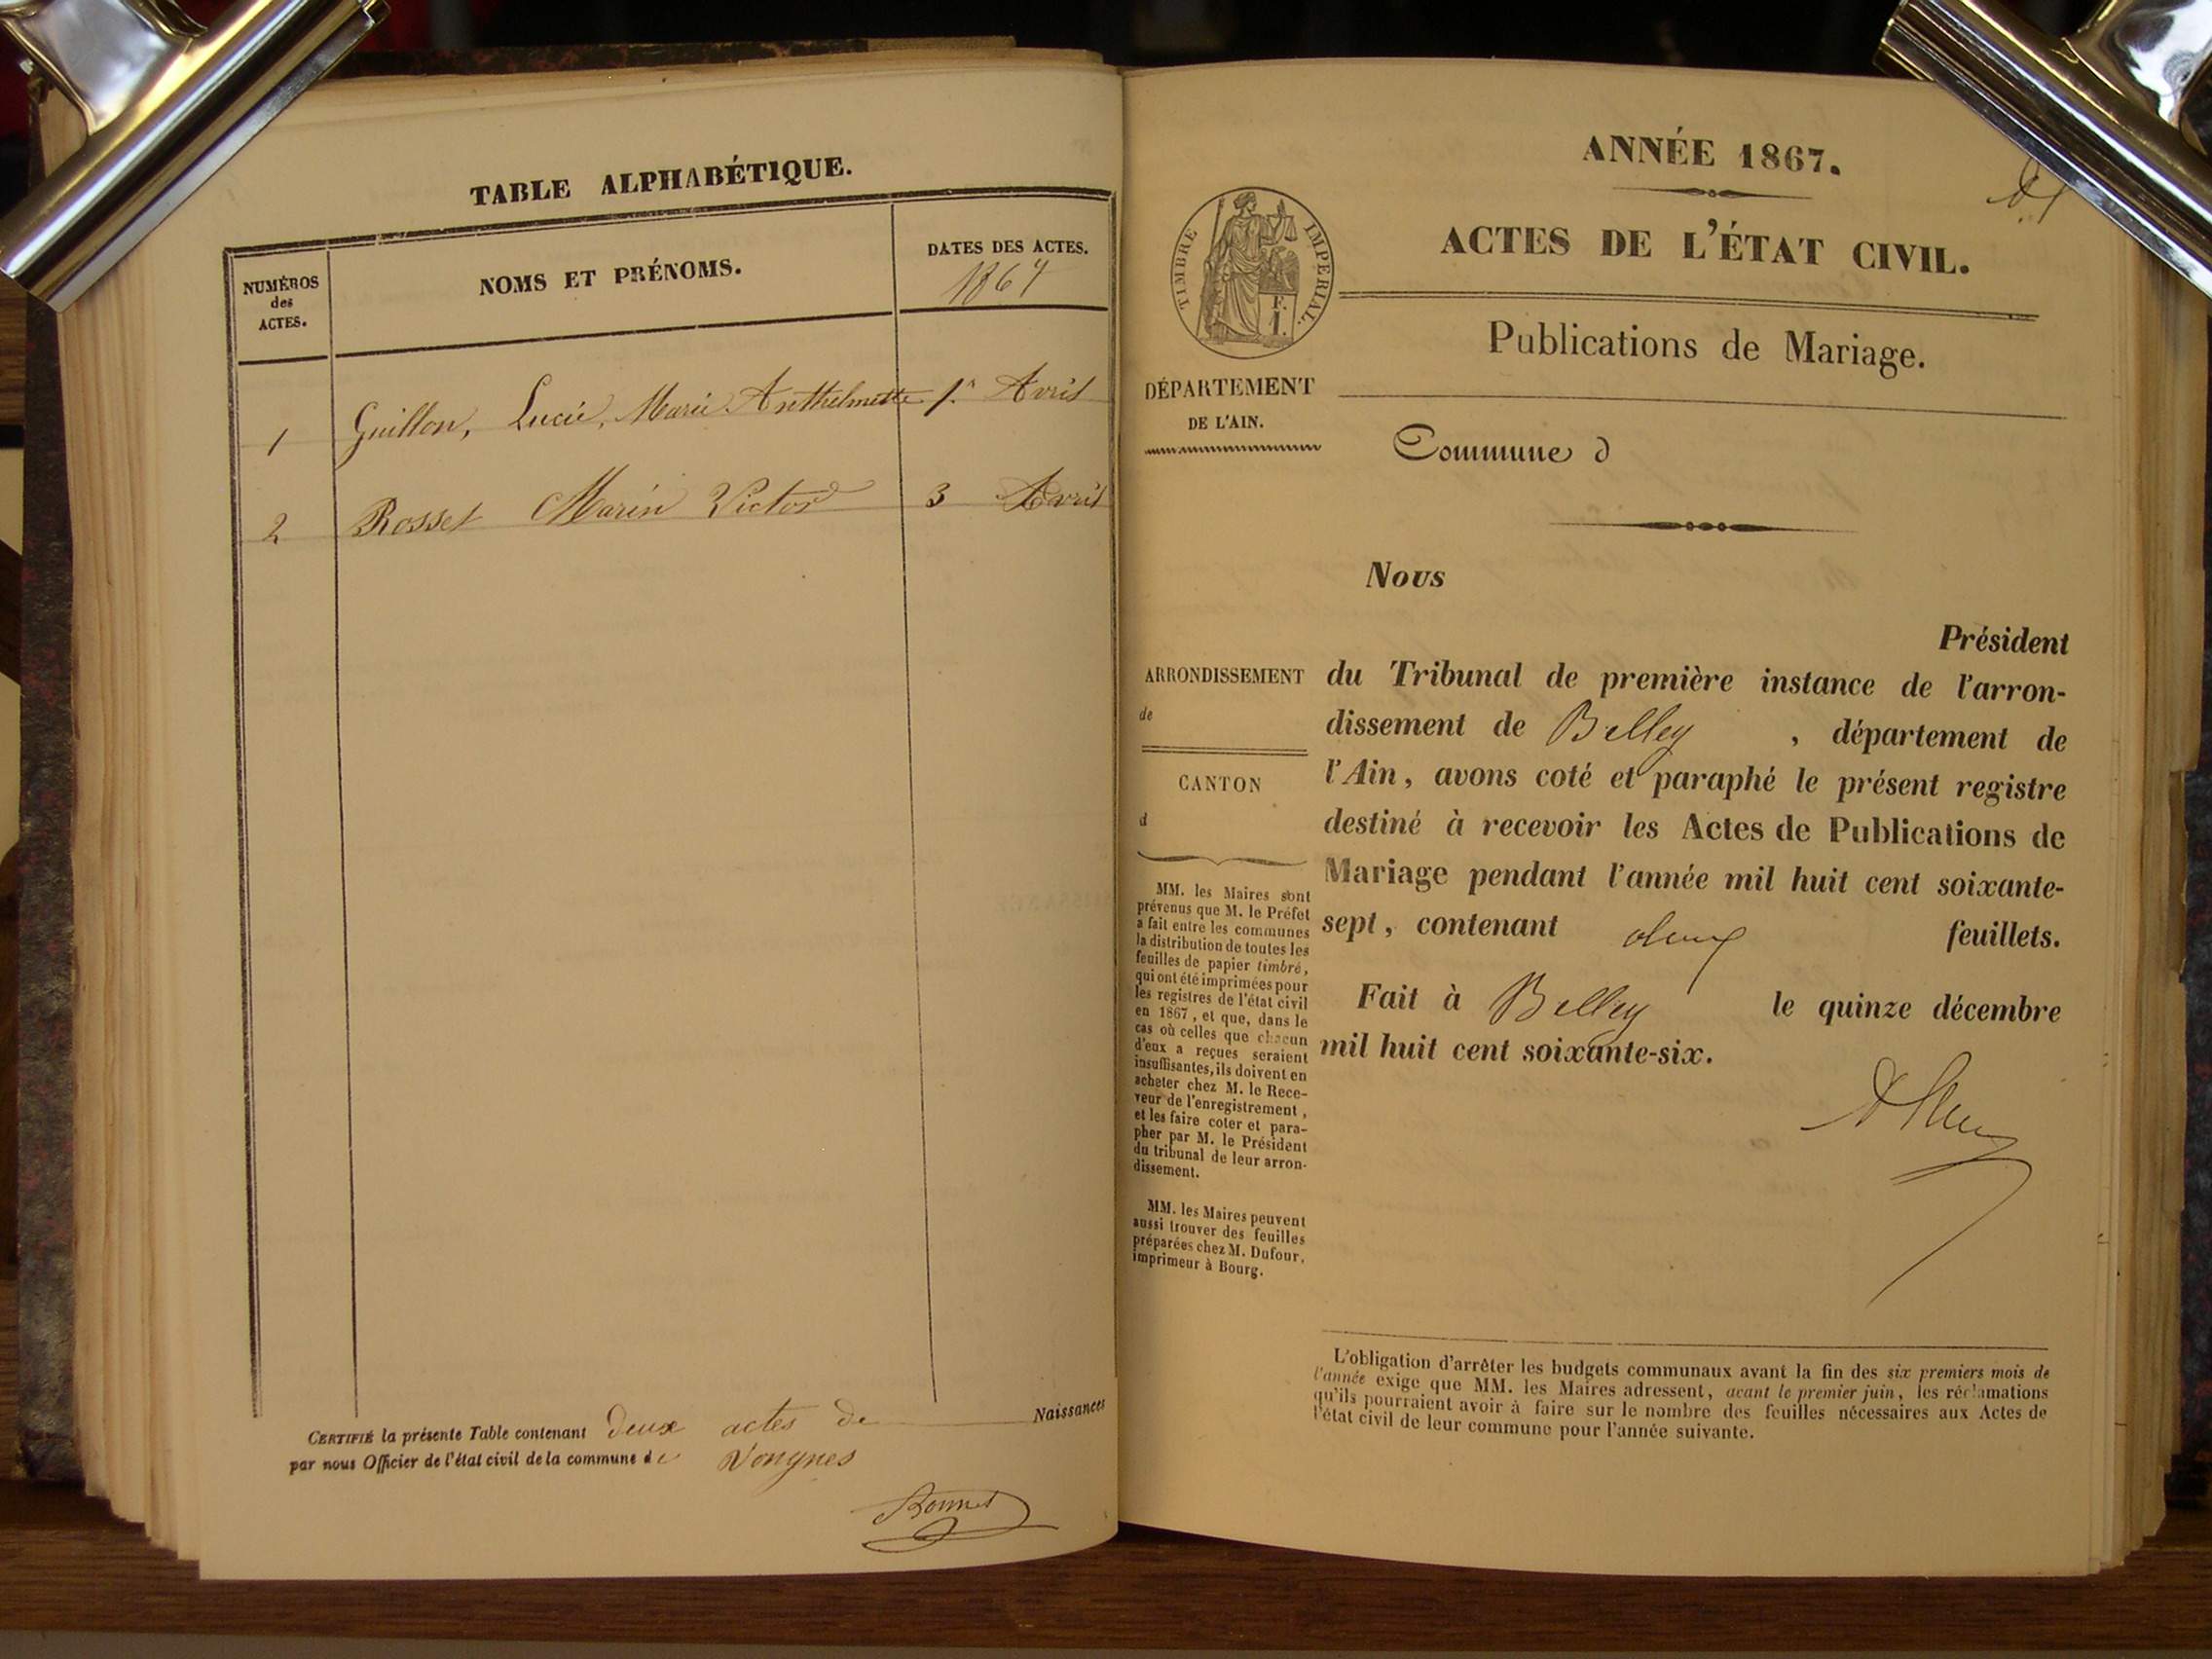 TABLE ALPHABÉTIQUE.
NUMÉROS
des
ACTES.
NOMS ET PRÉNOMS.
DATES DES ACTES.
1867
1 Guillon, Lucie, Marie Anthelmette 1er Avril
2 Rosset Marin Victor 3 Avril
CERTIFIÉ la présente Table contenant deux actes de Naissances
par nous Officier de l'état civil de la commune de Vongnes
Bonnet
ANNÉE 1867.
ACTES DE L'ÉTAT CIVIL.
TIMBRE IMPÉRIAL.
Publications de Mariage.
DÉPARTEMENT
DE L'AIN.
Commune d
Nous
Président
ARRONDISSEMENT
de
CANTON
d
du Tribunal de première instance de l'arron-
dissement de Belley , département de
l'Ain, avons coté et paraphé le présent registre
destiné à recevoir les Actes de Publications de
Mariage pendant l'année mil huit cent soixante-
sept, contenant deux feuillets.
Fait à Belley le quinze décembre
mil huit cent soixante-six.
MM. les Maires sont
prévenus que M. le Préfet
a fait entre les communes
la distribution de toutes les
feuilles de papier timbré,
qui ont été imprimées pour
les registres de l'état civil
en 1867, et que, dans le
cas où celles que chacun
d'eux a reçues seraient
insuffisantes, ils doivent en
acheter chez M. le Rece-
veur de l'enregistrement,
et les faire coter et para-
pher par M. le Président
du tribunal de leur arron-
dissement.
MM. les Maires peuvent
aussi trouver des feuilles
préparées chez M. Dufour,
imprimeur à Bourg.
L'obligation d'arrêter les budgets communaux avant la fin des six premiers mois de
l'année exige que MM. les Maires adressent, avant le premier juin, les réclamations
qu'ils pourraient avoir à faire sur le nombre des feuilles nécessaires aux Actes de
l'état civil de leur commune pour l'année suivante.